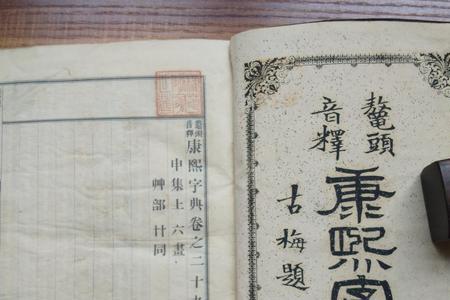 鼇頭
音釋
康熙字
古梅題
鼇頭音釋
康熙字典卷之二十九
申集上 六畫
艸部 卄同